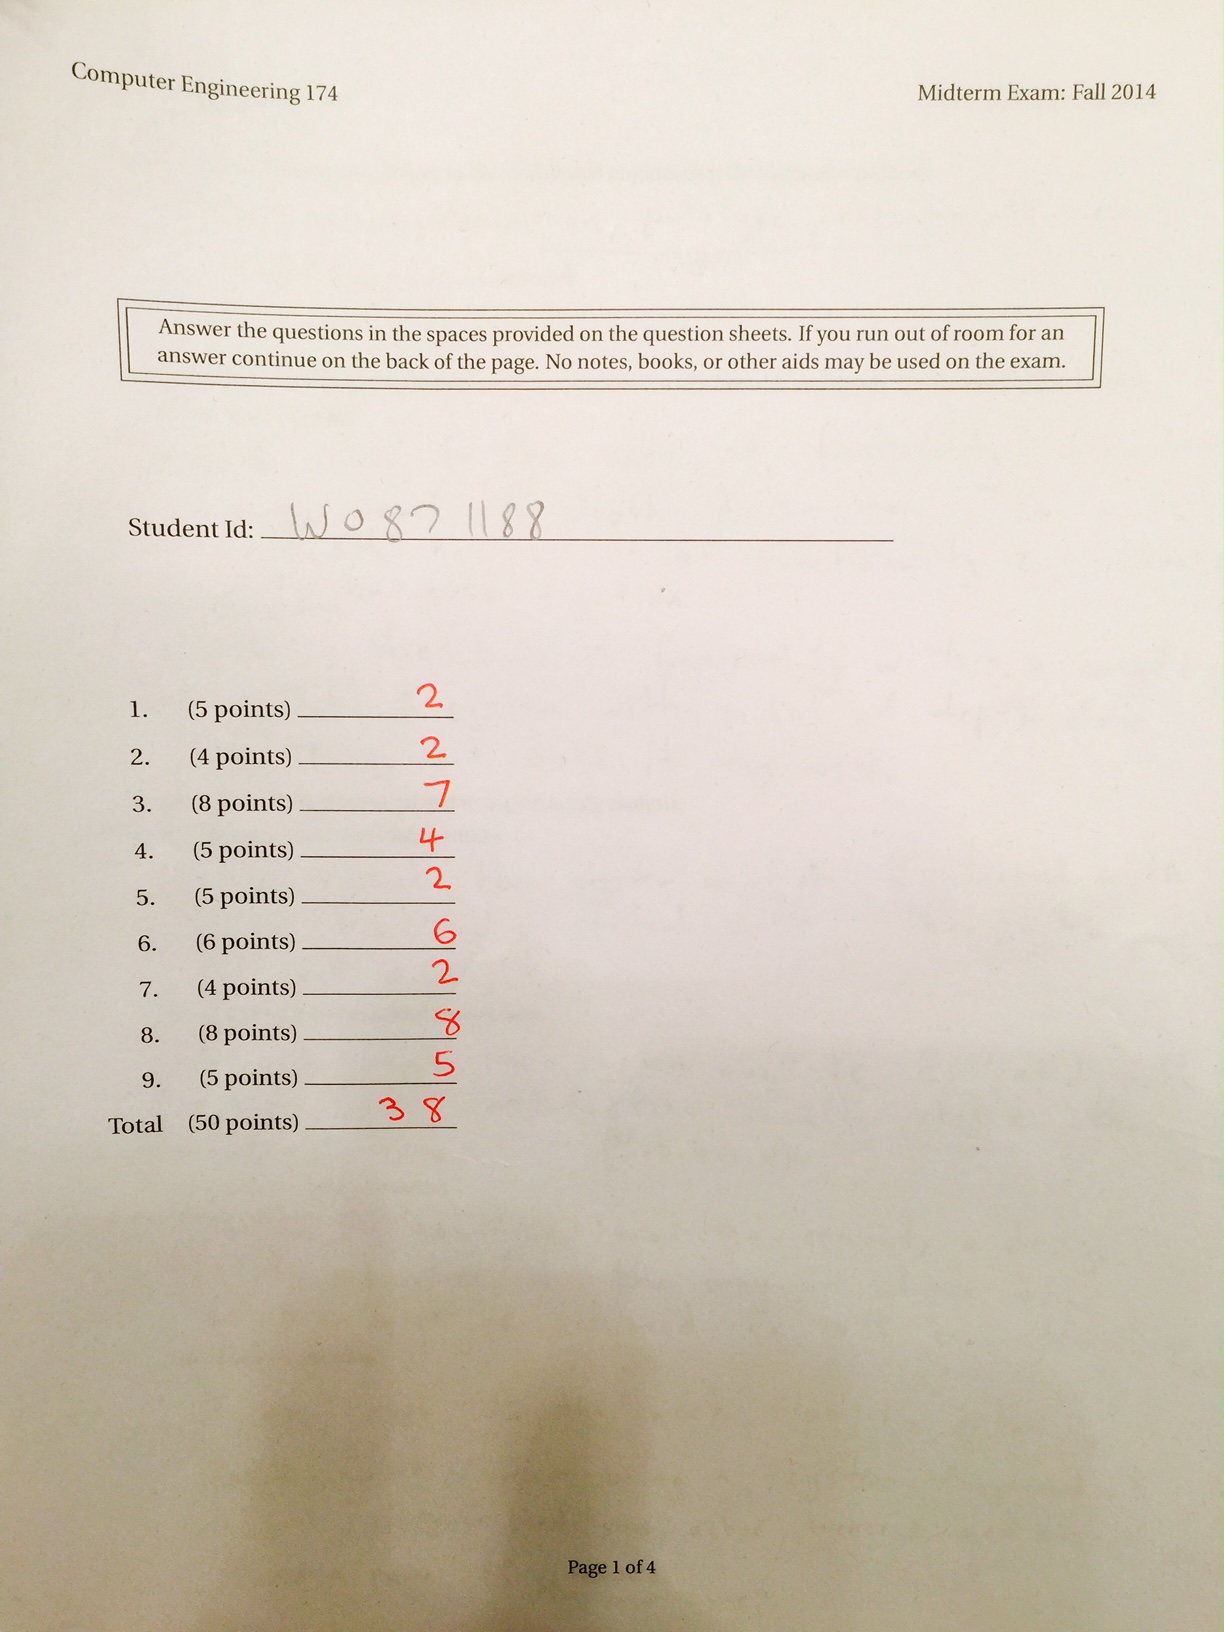 Computer Engineering 174 Midterm Exam: Fall 2014
Answer the questions in the spaces provided on the question sheets. If you run out of room for an
answer continue on the back of the page. No notes, books, or other aids may be used on the exam.
Student Id: W0871188
1. (5 points) 2
2. (4 points) 2
3. (8 points) 7
4. (5 points) 4
5. (5 points) 2
6. (6 points) 6
7. (4 points) 2
8. (8 points) 8
9. (5 points) 5
Total (50 points) 38
Page 1 of 4